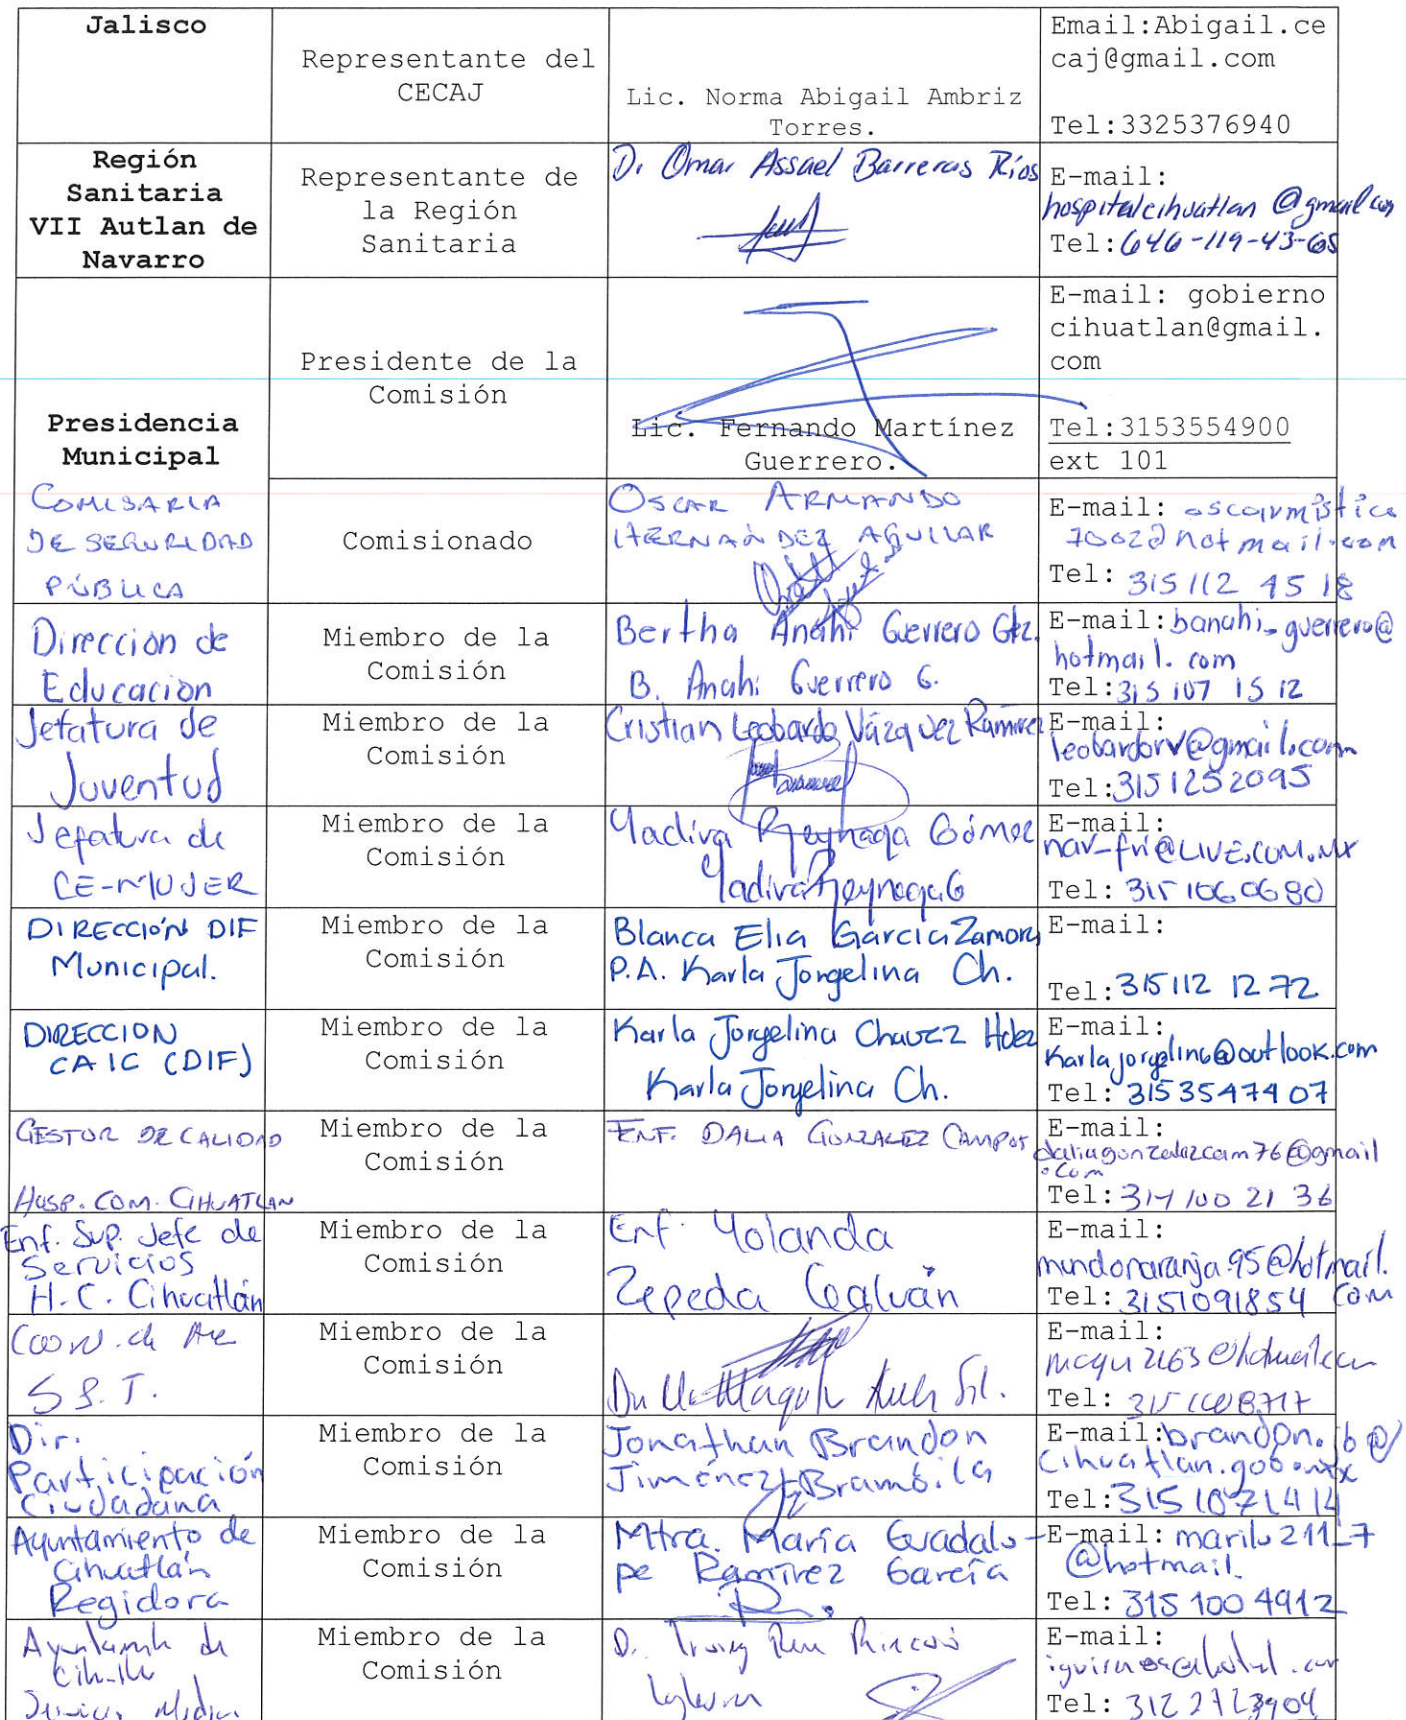 Jalisco
Representante del
CECAJ
Lic. Norma Abigail Ambriz
Torres.
Email:Abigail.ce
caj@gmail.com
Tel:3325376940
Región
Sanitaria
VII Autlan de
Navarro
Representante de
la Región
Sanitaria
Dr Omar Assael Barreras Ríos
E-mail:
hospitalcihuatlan @gmail.com
Tel:646-119-43-65
Presidencia
Municipal
Presidente de la
Comisión
Lic. Fernando Martínez
Guerrero.
E-mail: gobierno
cihuatlan@gmail.
com
Tel:3153554900
ext 101
COMISARIA
DE SEGURIDAD
PÚBLICA
Comisionado
OSCAR ARMANDO
HERNÁNDEZ AGUILAR
E-mail: oscarmistica
7002@hotmail.com
Tel: 315 112 45 18
Direccion de
Educacion
Miembro de la
Comisión
Bertha Anahi Guerrero Gtz.
B. Anahi Guerrero G.
E-mail:banahi_guerrero@
hotmail.com
Tel:315 107 15 12
Jefatura de
Juventud
Miembro de la
Comisión
Cristian Leobardo Vázquez Ramirez
E-mail:
leobardorv@gmail.com
Tel:3151252095
Jefatura de
CE-MUJER
Miembro de la
Comisión
Yadira Reynaga Gómez
Yadira Reynaga G
E-mail:
nav_fri@LIVE.COM.MX
Tel: 315 1060680
DIRECCIÓN DIF
Municipal.
Miembro de la
Comisión
Blanca Elia García Zamora
P.A. Karla Jorgelina Ch.
E-mail:
Tel:315 112 12 72
DIRECCION
CAIC (DIF)
Miembro de la
Comisión
Karla Jorgelina Chavez Hdez
Karla Jorgelina Ch.
E-mail:
Karlajorgelina@outlook.com
Tel: 315 354 74 07
GESTOR DE CALIDAD
HOSP. COM. CIHUATLAN
Miembro de la
Comisión
ENF. DALIA GONZALEZ CAMPOS
E-mail:
daliagonzalezcam76@gmail
.com
Tel: 314 100 21 36
Enf. Sup. Jefe de
Servicios
H.C. Cihuatlán
Miembro de la
Comisión
Enf. Yolanda
Zepeda Galván
E-mail:
mundonaranja.95@hotmail.
Tel: 3151091854 com
Coord. de
S.S.J.
Miembro de la
Comisión
E-mail:
Tel: 315
Dir.
Participación
Ciudadana
Miembro de la
Comisión
Jonathan Brandon
Jiménez Brambila
E-mail:brandon.jb@
cihuatlan.gob.mx
Tel:315 1071414
Ayuntamiento de
Cihuatlán
Regidora
Miembro de la
Comisión
Mtra. María Guadalu-
pe Ramírez García
E-mail: marilu211_7
@hotmail.
Tel: 315 100 4912
Ayuntamiento de
Miembro de la
Comisión
E-mail:
Tel: 312 2123904